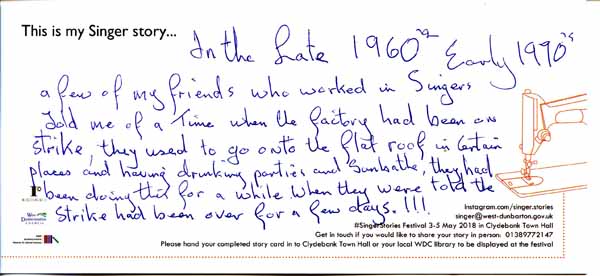 This is my Singer story...
In the Late 1960's Early 1990's
a few of my friends who worked in Singers
Told me of a Time when the factory had been on
strike, they used to go onto the flat roof in Certain
places and having drinking parties and Sunbathe, they had
been doing this for a while when they were told the
Strike had been over for a few days. !!!
Instagram.com/singer.stories
singer@west-dunbarton.gov.uk
#SingerStories Festival 3-5 May 2018 in Clydebank Town Hall
Get in touch if you would like to share your story in person: 01389772147
Please hand your completed story card in to Clydebank Town Hall or your local WDC library to be displayed at the festival